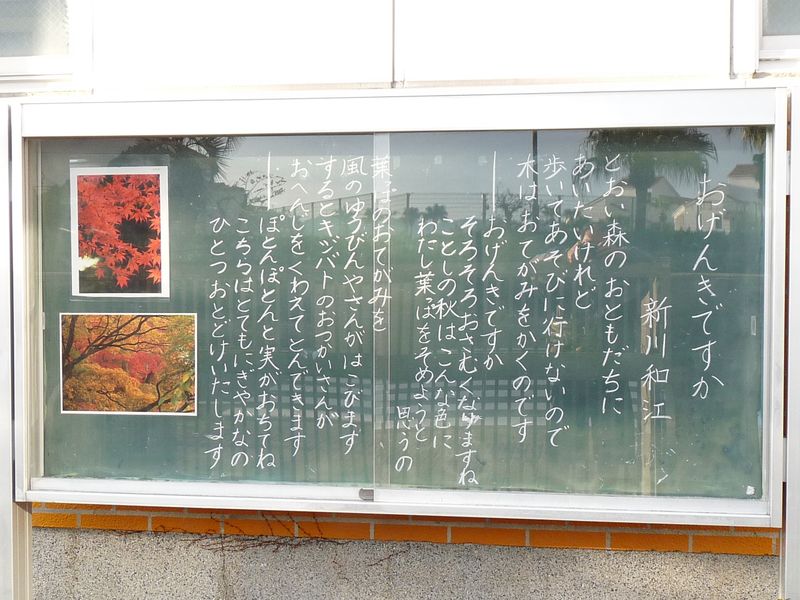 おげんきですか
新川和江
とおい森のおともだちに
あいたいけれど
歩いてあそびに行けないので
木はおてがみをかくのです
──おげんきですか
そろそろおさむくなりますね
ことしの秋はこんな色に
わたし葉っぱをそめようと
思うの
葉っぱのおてがみを
風のゆうびんやさんがはこびます
するとキジバトのおつかいさんが
おへんじをくわえてとんできます
──ぽとんぽとんと実がおちてね
こちらはとてもにぎやかなの
ひとつおとどけいたします